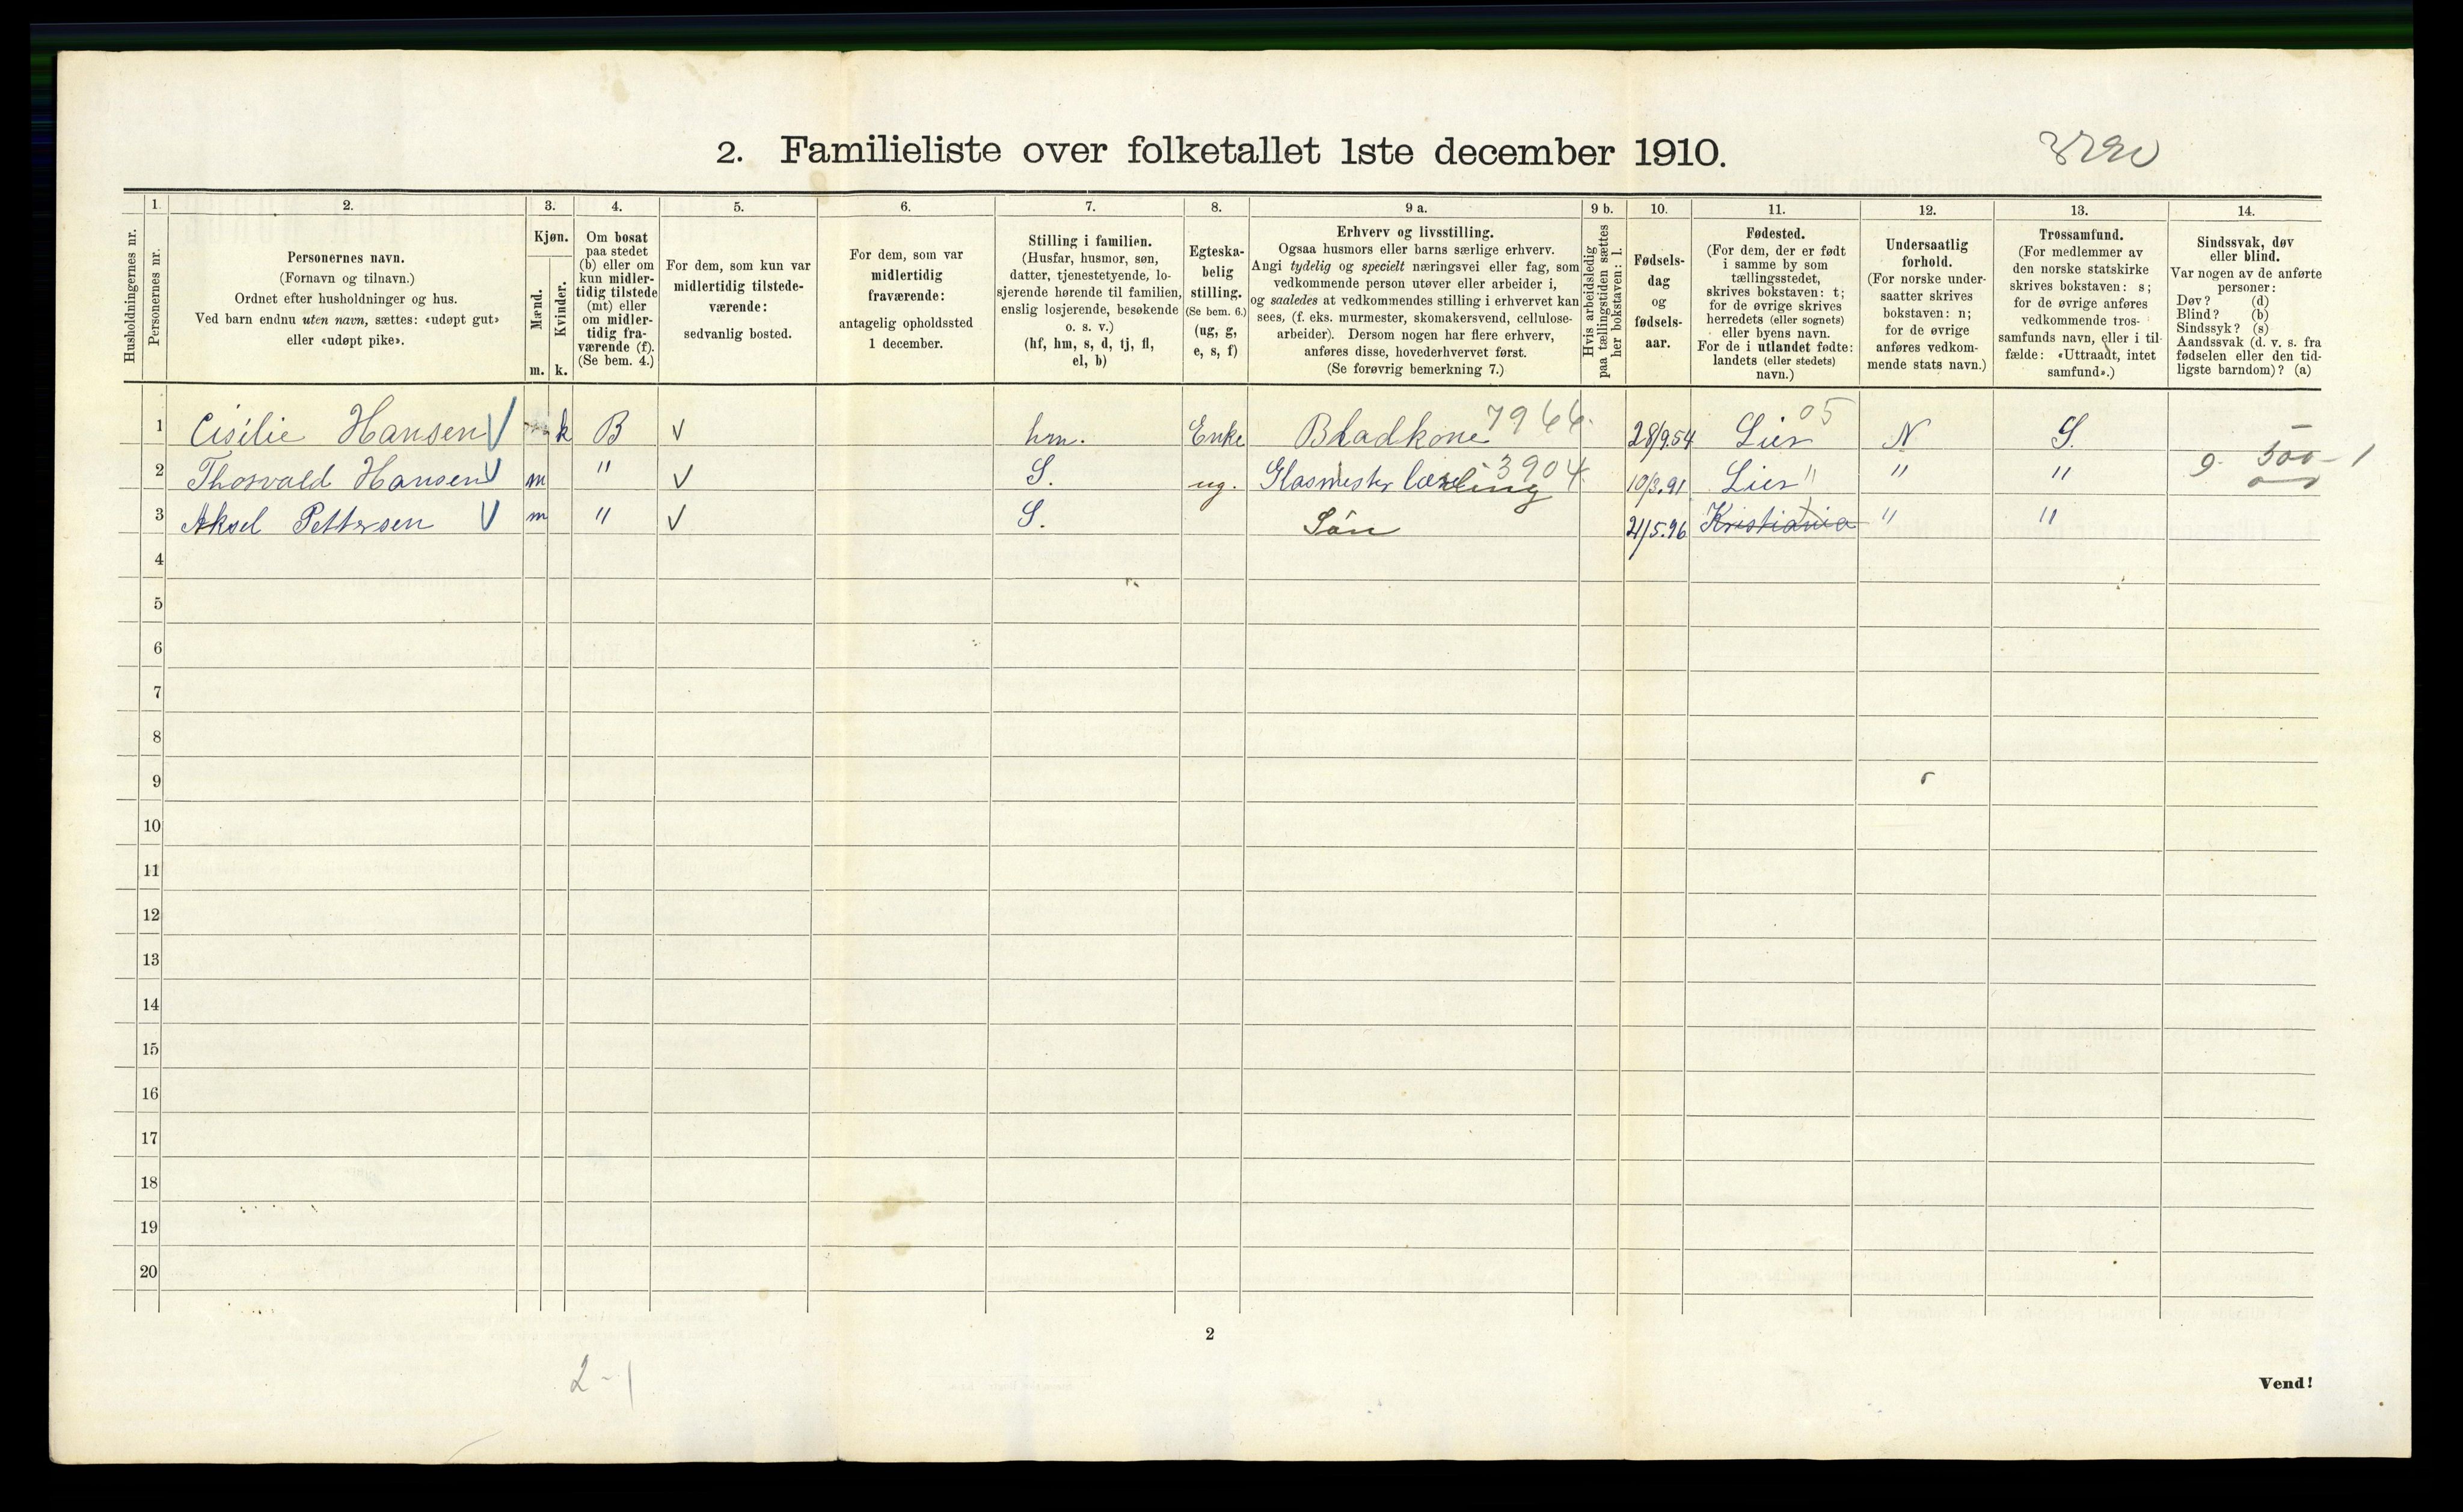 2. Familieliste over folketallet 1ste december 1910.
Husholdningernes nr.
1. Personernes nr.
2. Personernes navn.
(Fornavn og tilnavn.)
Ordnet efter husholdninger og hus.
Ved barn endnu uten navn, sættes: «udøpt gut»
eller «udøpt pike».
3. Kjøn.
Mænd. m.
Kvinder. k.
4. Om bosat
paa stedet
(b) eller om
kun midler-
tidig tilstede
(mt) eller
om midler-
tidig fra-
værende (f).
(Se bem. 4.)
5. For dem, som kun var
midlertidig tilstede-
værende:
sedvanlig bosted.
6. For dem, som var
midlertidig
fraværende:
antagelig opholdssted
1 december.
7. Stilling i familien.
(Husfar, husmor, søn,
datter, tjenestetyende, lo-
sjerende hørende til familien,
enslig losjerende, besøkende
o. s. v.)
(hf, hm, s, d, tj, fl,
el, b)
8. Egteska-
belig
stilling.
(Se bem. 6.)
(ug, g,
e, s, f)
9 a. Erhverv og livsstilling.
Ogsaa husmors eller barns særlige erhverv.
Angi tydelig og specielt næringsvei eller fag, som
vedkommende person utøver eller arbeider i,
og saaledes at vedkommendes stilling i erhvervet kan
sees, (f. eks. murmester, skomakersvend, cellulose-
arbeider). Dersom nogen har flere erhverv,
anføres disse, hovederhvervet først.
(Se forøvrig bemerkning 7.)
9 b. Hvis arbeidsledig
paa tællingstiden sættes
her bokstaven: l.
10. Fødsels-
dag
og
fødsels-
aar.
11. Fødested.
(For dem, der er født
i samme by som
tællingsstedet,
skrives bokstaven: t;
for de øvrige skrives
herredets (eller sognets)
eller byens navn.
For de i utlandet fødte:
landets (eller stedets)
navn.)
12. Undersaatlig
forhold.
(For norske under-
saatter skrives
bokstaven: n;
for de øvrige
anføres vedkom-
mende stats navn.)
13. Trossamfund.
(For medlemmer av
den norske statskirke
skrives bokstaven: s;
for de øvrige anføres
vedkommende tros-
samfunds navn, eller i til-
fælde: «Uttraadt, intet
samfund».)
14. Sindssvak, døv
eller blind.
Var nogen av de anførte
personer:
Døv? (d)
Blind? (b)
Sindssyk? (s)
Aandssvak (d. v. s. fra
fødselen eller den tid-
ligste barndom)? (a)
1 Cisilie Hansen k B hm. Enke Bladkone 7966. 28/9.54 Lier 05 N S. –
2 Thorvald Hansen m " S. ug. Glasmester læreling 3904. 10/3.91 Lier " " " 9. 500 – 1
3 Aksel Pettersen m " S. Søn 21/5.96 Kristiania " "
4
5
6
7
8
9
10
11
12
13
14
15
16
17
18
19
20
2
2 - 1
Vend!